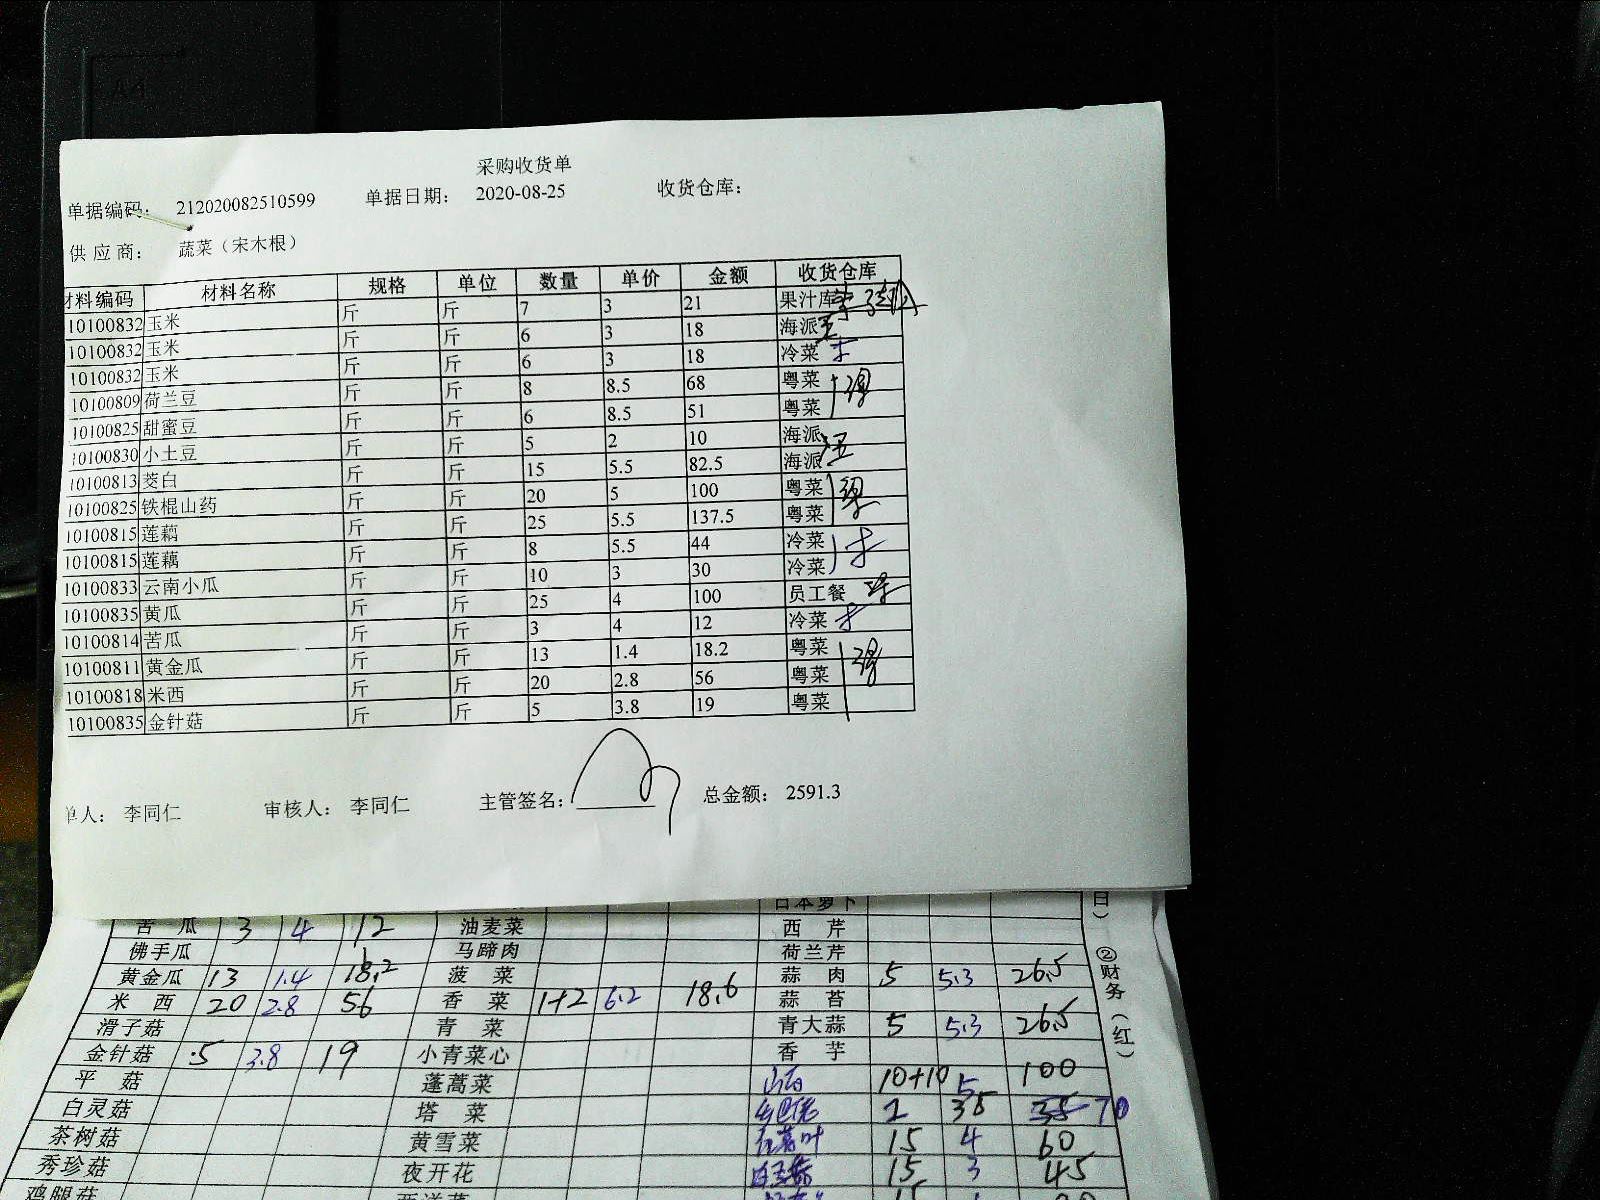 采购收货单
单据编码： 212020082510599 单据日期： 2020-08-25 收货仓库：
供应商： 蔬菜（宋木根）
材料编码 材料名称 规格 单位 数量 单价 金额 收货仓库
10100832 玉米 斤 斤 7 3 21 果汁库
10100832 玉米 斤 斤 6 3 18 海派
10100832 玉米 斤 斤 6 3 18 冷菜
10100809 荷兰豆 斤 斤 8 8.5 68 粤菜
10100825 甜蜜豆 斤 斤 6 8.5 51 粤菜
10100830 小土豆 斤 斤 5 2 10 海派
10100813 茭白 斤 斤 15 5.5 82.5 海派
10100825 铁棍山药 斤 斤 20 5 100 粤菜
10100815 莲藕 斤 斤 25 5.5 137.5 粤菜
10100815 莲藕 斤 斤 8 5.5 44 冷菜
10100833 云南小瓜 斤 斤 10 3 30 冷菜
10100835 黄瓜 斤 斤 25 4 100 员工餐
10100814 苦瓜 斤 斤 3 4 12 冷菜
10100811 黄金瓜 斤 斤 13 1.4 18.2 粤菜
10100818 米西 斤 斤 20 2.8 56 粤菜
10100835 金针菇 斤 斤 5 3.8 19 粤菜
单人： 李同仁 审核人： 李同仁 主管签名： 总金额： 2591.3
日本萝卜
苦瓜 3 4 12 油麦菜 西芹
佛手瓜 马蹄肉 荷兰芹
黄金瓜 13 1.4 18.2 菠菜 蒜肉 5 5.3 26.5
米西 20 2.8 56 香菜 1+2 6.2 18.6 蒜苔
滑子菇 青菜 青大蒜 5 5.3 26.5
金针菇 5 3.8 19 小青菜心 香芋
平菇 蓬蒿菜 10+10 5 100
白灵菇 塔菜 2 35 70
茶树菇 黄雪菜 15 4 60
秀珍菇 夜开花 15 3 45
鸡腿菇 西洋菜 15
日）②财务（红）